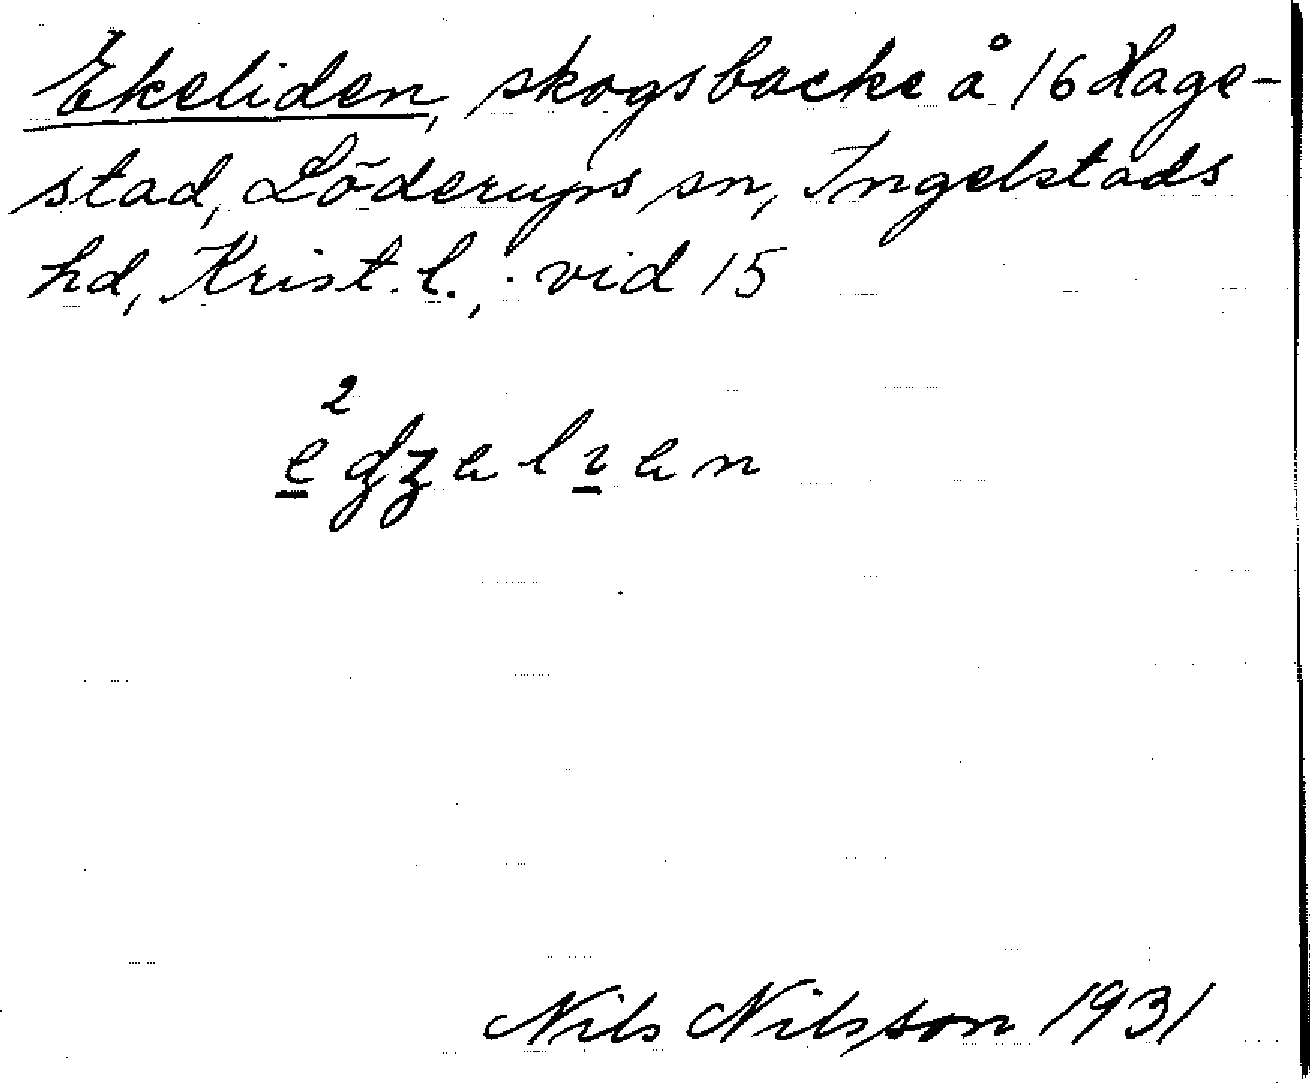 Ekeliden, skogsbacke å 16 Hage-
stad, Löderups sn, Ingelstads
hd, Krist. l.; vid 15
2
Nils Nilsson 1931